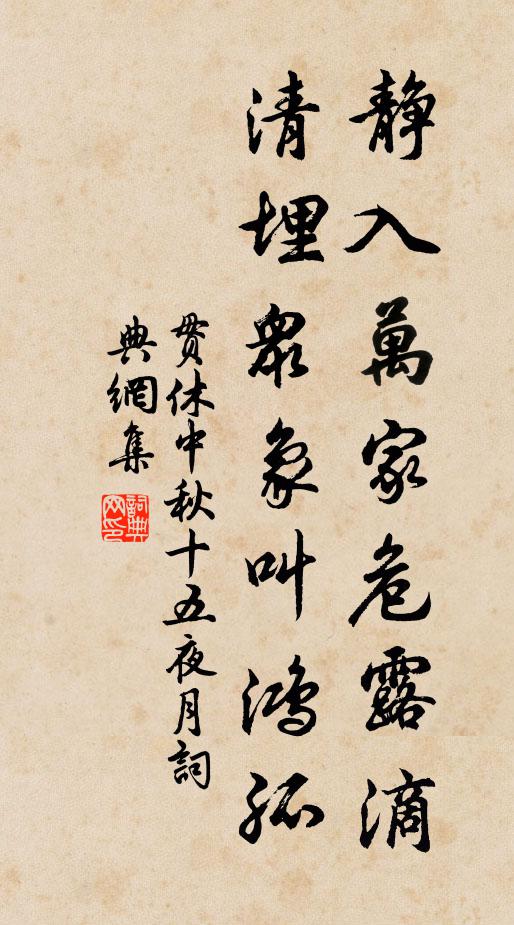 靜入萬家危露滴
清埋眾象叫鴻孤
貫休中秋十五夜月詞
典網集
詞典網印